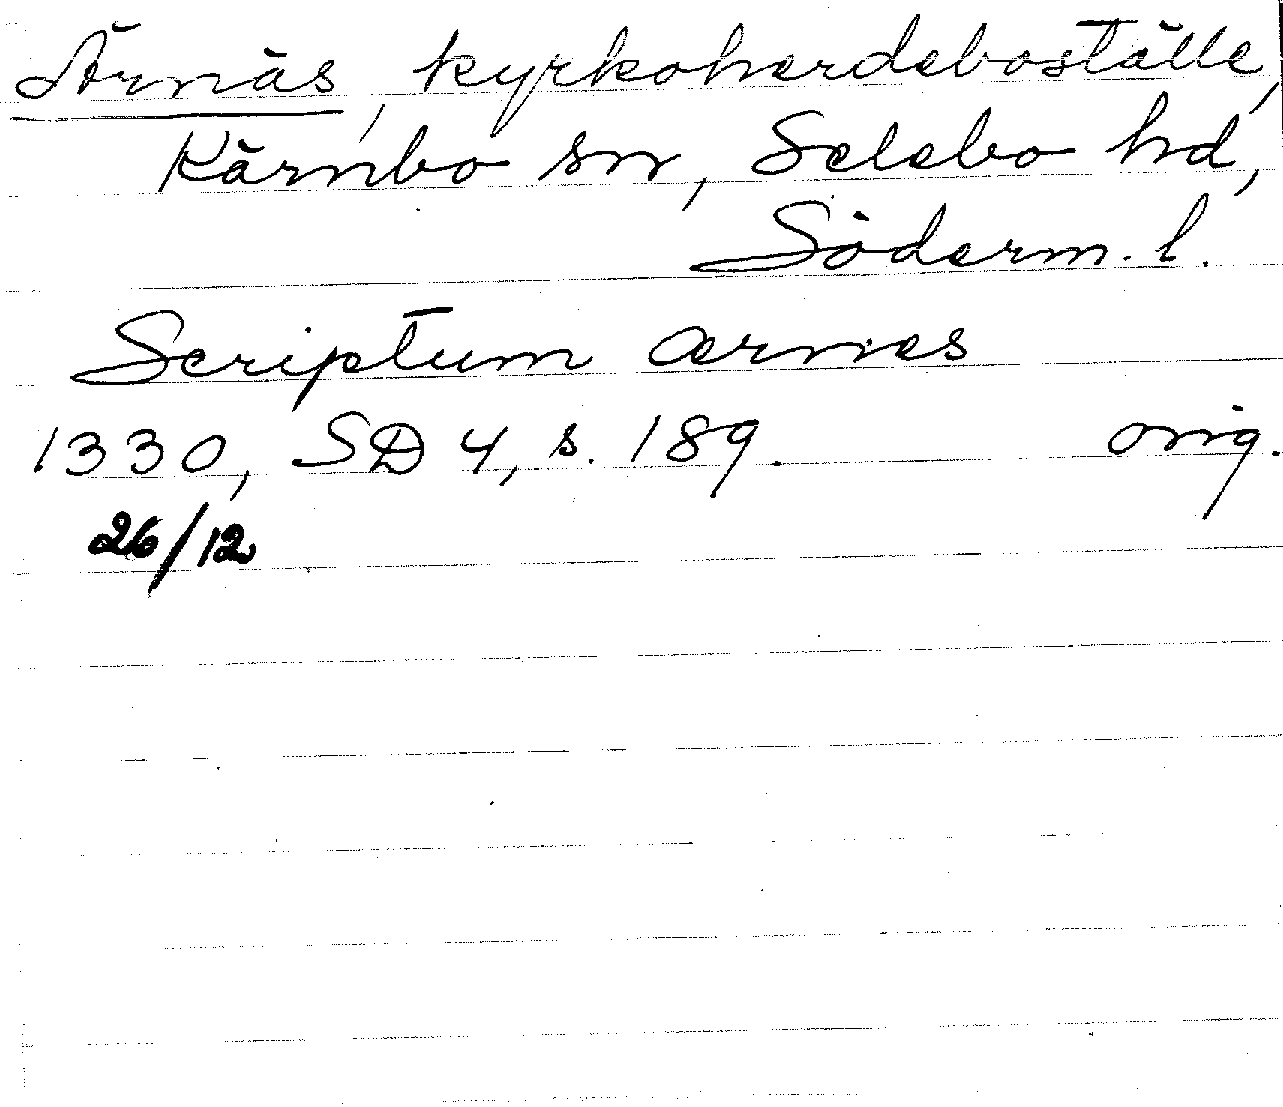 Ärnäs, kyrkoherdeboställe,
Kärnbo sn, Selebo hd,
Söderm. l.
Scriptum ærnes
1330, SD 4, s. 189. orig.
26/12